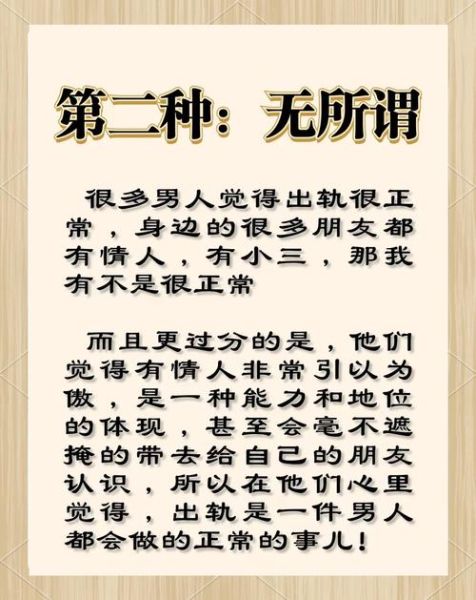 第二种：无所谓
很多男人觉得出轨很正
常，身边的很多朋友都
有情人，有小三，那我
有不是很正常
而且更过分的是，他们
觉得有情人非常引以为
傲，是一种能力和地位
的体现，甚至会毫不遮
掩的带去给自己的朋友
认识，所以在他们心里
觉得，出轨是一件男人
都会做的正常的事儿！